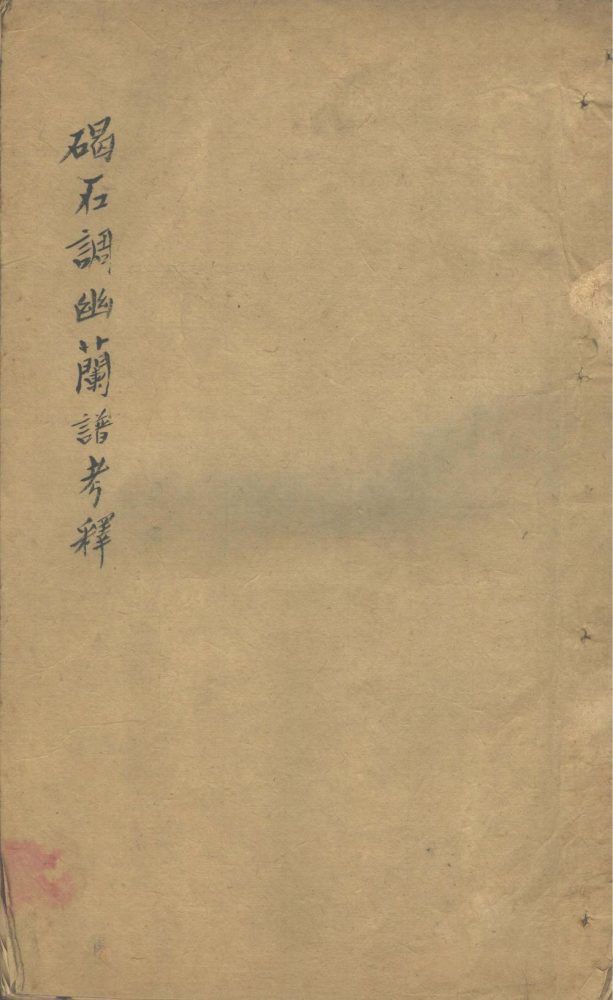 碣石調幽蘭譜考釋